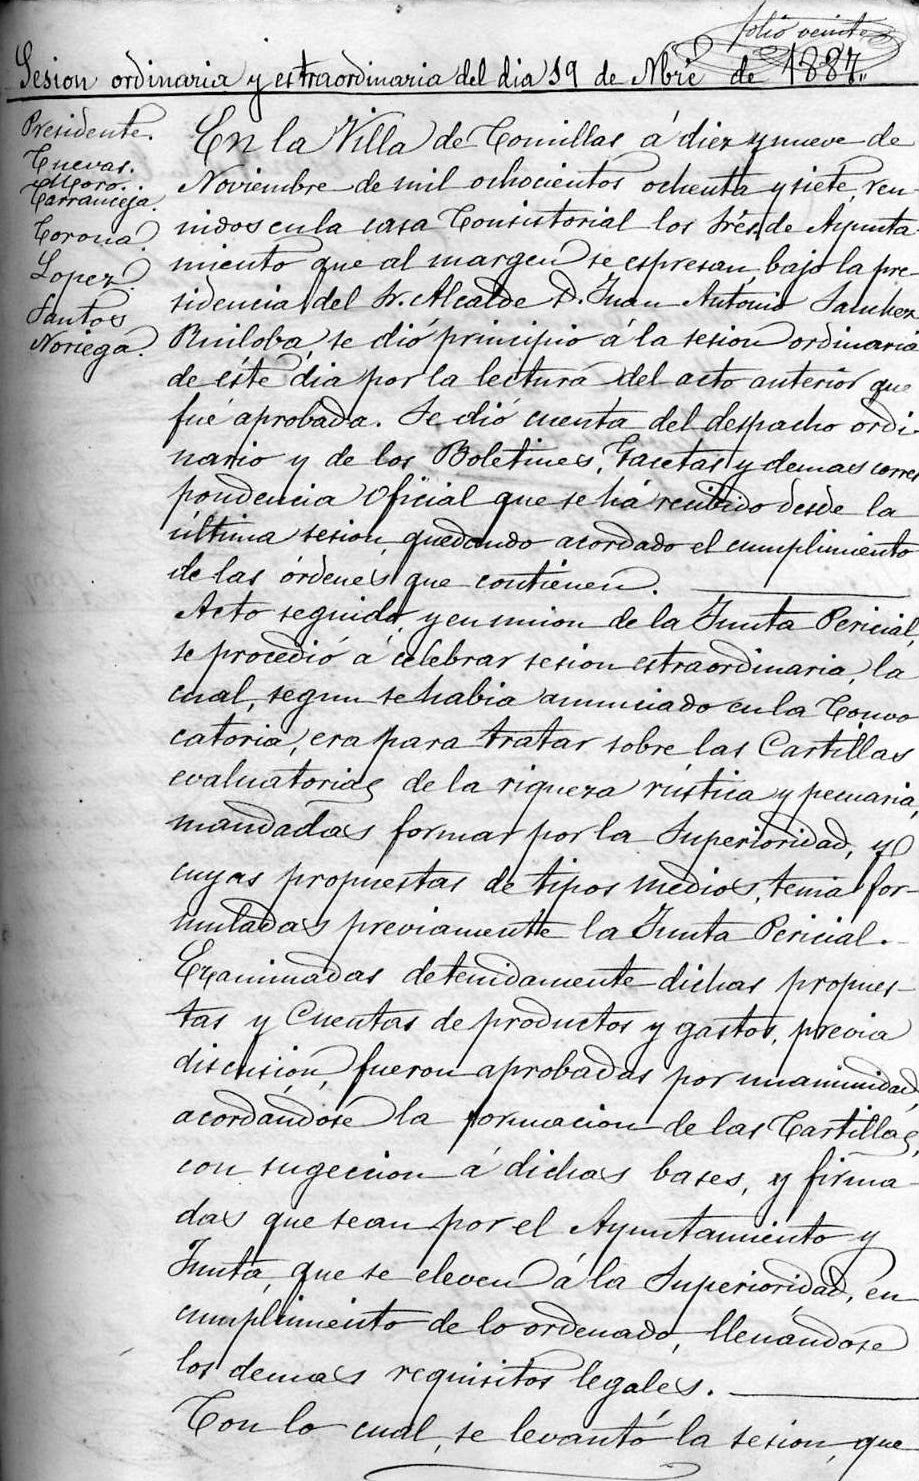 folio veinte
Sesion ordinaria y estraordinaria del dia 19 de Nbre de 1887,,
Presidente.
Cuevas.
Moro.
Carranceja.
Corona.
Lopez.
Santos
Noriega.
En la Villa de Comillas á diez y nueve de
Noviembre de mil ochocientos ochenta y siete, reu-
nidos en la casa Consistorial los Srés. de Ayunta-
miento que al margen se espresan, bajo la pre-
sidencia del Sr. Alcalde D. Juan Antonio Sanchez
Ruiloba, se dió principio á la sesion ordinaria
de éste dia por la lectura del acto anterior que
fué aprobada. Se dió cuenta del despacho ordi-
nario y de los Boletines, Gacetas y demas corres
pondencia Oficial que se há recibido desde la
última sesion, quedando acordado el cumplimiento
de las órdenes que contienen.
Acto seguido, y en union de la Junta Pericial,
se procedió á celebrar sesion estraordinaria, la
cual, segun se habia anunciado en la Convo
catoria, era para tratar sobre las Cartillas
evaluatorias de la riqueza rústica y pecuaria,
mandadas formar por la Superioridad, y
cuyas propuestas de tipos medios, tenia for-
muladas previamente la Junta Pericial.
Examinadas detenidamente dichas propues-
tas y Cuentas de productos y gastos, previa
discusion, fueron aprobadas por unanimidad,
acordándose la formacion de las Cartillas,
con sugeccion á dichas bases, y firma-
das que sean por el Ayuntamiento y
Junta, que se eleven á la Superioridad, en
cumplimiento de lo ordenado, llenándose
los demas requisitos legales.
Con lo cual, se levantó la sesion, que